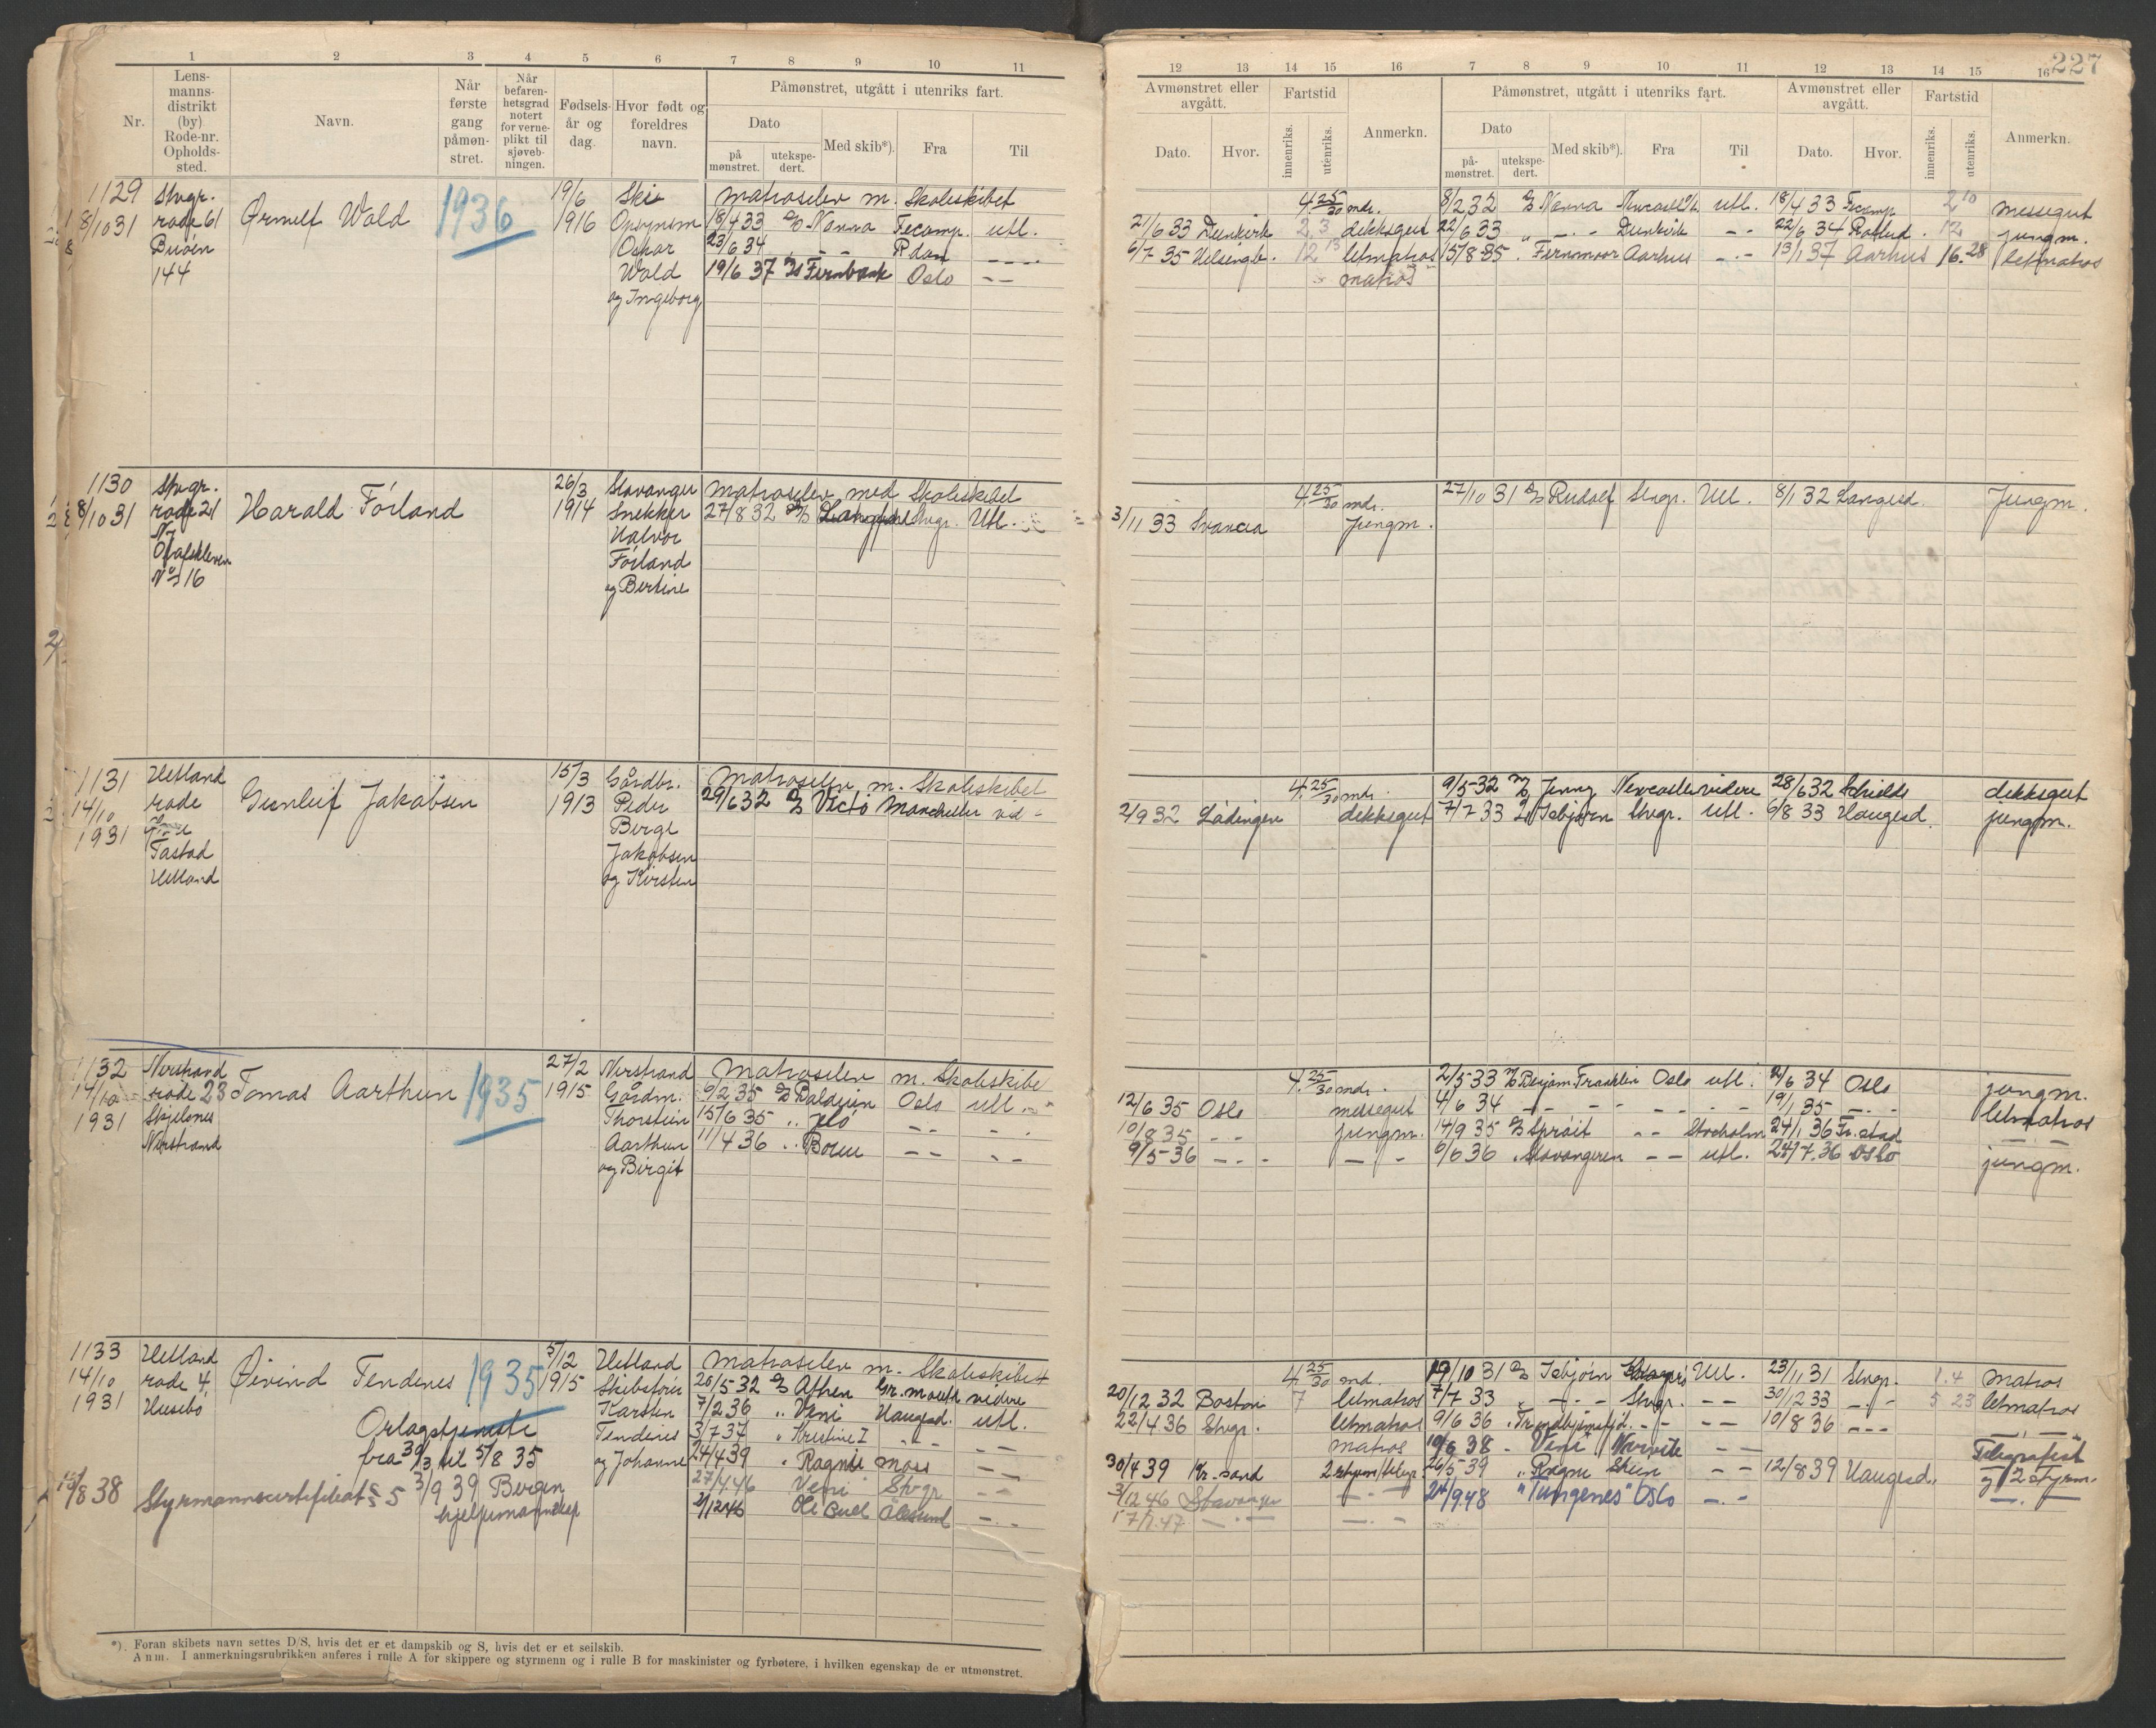 227
1 2 3 4 5 6 7 8 9 10 11
Nr.
Lens-
manns-
distrikt
(by)
Rode-nr.
Opholds-
sted.
Navn.
Når
første
gang
påmøn-
stret.
Når
befaren-
hetsgrad
notert
for verne-
plikt til
sjøveb-
ningen.
Fødsels-
år og
dag.
Hvor født og
foreldres
navn.
Påmønstret, utgått i utenriks fart.
Dato
på
mønstret.
utekspe-
dert.
Med skib*).
Fra
Til
12 13 14 15 16 7 8 9 10 11 12 13 14 15 16
Avmønstret eller
avgått.
Dato. Hvor.
Fartstid
innenriks. utenriks.
Anmerkn.
Påmønstret, utgått i utenriks fart.
Dato
på-
mønstret.
utekspe-
dert.
Med skib*).
Fra
Til
Avmønstret eller
avgått.
Dato. Hvor.
Fartstid
innenriks. utenriks.
Anmerkn.
1129 Stvgr. 19/6 Matroselev m. Skoleskibet
8/10 31 rode 61 Wald 1936 1916 18/4 33 Nanna Fecamp. utl.
Oskar 23/6 34 - - R.dam
144 Wald 19/6 37 Fernbank Oslo - -
og Ingeborg
4 25/30 mdr. 8/2 32 Nanna utl. 18/4 33 Fecamp 2 10 messegut
21/6 33 Dunkirk 2 3 dekksgut 22/6 33 " - - Dunkirk - - 22/6 34 12 jungm.
6/7 35 12 13 letmatros 15/8 35 Fernmoor Aarhus - - 13/1 37 Aarhus 16 28 letmatros
matros
1130 Stvgr. 26/3 Stavanger Matroselev med Skoleskibet
8/10 31 rode 21 Harald Föiland 1914 Snekker 27/8 32 Stvgr. Utl.
Ny Halvor
Olafskleven Föiland
No 16 og Bertine
4 25/30 mdr. 27/10 31 Rudolf Stvgr. Utl. 8/1 32 Langesd. Jungm.
3/11 33 Svanca Jungm.
1131 Hetland 15/3 Gårdbr. Matroselev m. Skoleskibet
14/10 rode Gunleif Jakobsen 1913 Peder 29/6 32 Victo Manchester vid -
1931 Berge
Tastad Jakobsen
Hetland og Kirsten
4 25/30 mdr. 9/5 32 Jenny Newcastle videre 28/6 32 Schields dekksgut
2/9 32 Lödingen dekksgut 7/7 33 Isbjørn Stvgr. utl. 6/8 33 Haugesd. jungm.
1132 Nerstrand 27/2 Nerstrand Matroselev m. Skoleskibe
14/10 rode 23 Tomas Aarthun 1935 1915 Gårdm. 9/2 35 Baldwin Oslo utl.
1931 Skjelones Thorstein 15/6 35 " Jelö - - - -
Nerstrand Aarthun 11/4 36 " - - - -
og Birgit
4 25/30 mdr. 2/5 33 Benjam Franklin Oslo utl. 2/6 34 Oslo jungm.
12/6 35 Oslo messegut 4/6 34 - - - - - - 19/1 35 - - letmatros
10/8 35 - - jungm. 14/9 35 Spröit - - Stocholm 24/1 36 Fr.stad - -
9/5 36 - - - - 6/6 36 " Stavangeren - - utl. 24/7 36 Oslo jungm.
1133 Hetland 5/12 Hetland Matroselev m. Skoleskibet
14/10 rode 4 Øivind Tendenes 1935 1915 Skibsfører 20/5 32 Athen Gr.mouth videre
1931 Husebö Karsten 7/2 36 " Veni Haugesd. utl.
Orlogstjeneste Tendenes 3/7 37 " Kristine I - - - -
fra 30/3 til 5/8 35 og Johanne 24/4 39 " Ragni Moss - -
15/8 38 Styrmannscertifikat 5 3/9 39 Bergen 27/4 46 Veni Stvgr - -
2/12 46 Ole Bull Ålesund - -
4 25/30 md. 19/10 31 Isbjörn Utl. 23/1 31 Stvgr. 1.4 Matros
20/12 32 Boston 7 letmatros 7/7 33 " - - - Stvgr. - - 30/12 33 - - 5 23 letmatros
22/4 36 Stvgr. letmatros 9/6 36 " Trondhjemsfjd. - - - - 10/8 36 - - -
matros 10/6 38 " Veni Narvik - - Telegrafist
30/4 39 Kr.sand 2 styrm/telegr. 26/5 39 " Ragni Skien - - 12/8 39 Haugesd. og 2 styrm.
3/12 46 Stavanger - - 24/9 48 "Tungenes" Oslo - - - -
17/1 47 - - - -
*). Foran skibets navn settes D/S, hvis det er et dampskib og S, hvis det er et seilskib.
Anm. I anmerkningsrubrikken anføres i rulle A for skippere og styrmenn og i rulle B for maskinister og fyrbøtere, i hvilken egenskap de er utmønstret.